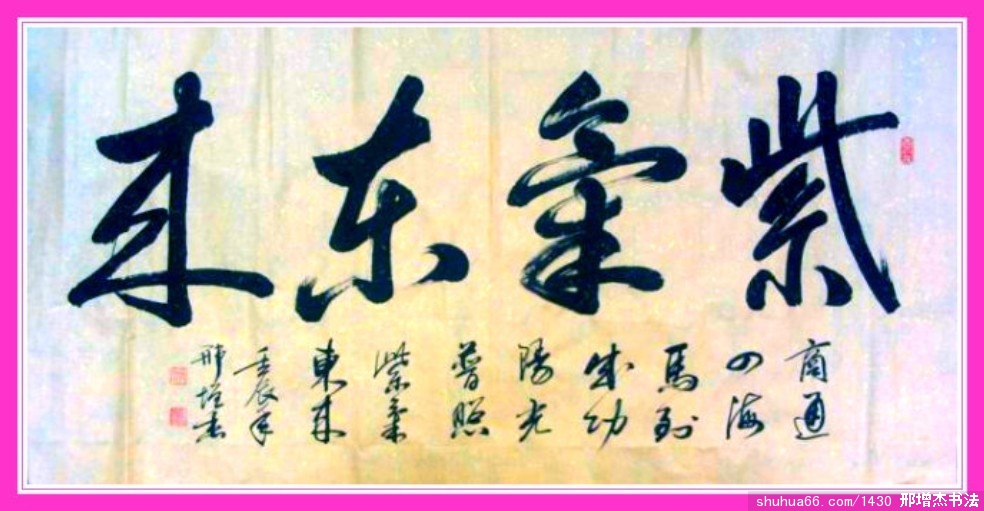 紫氣東来
商通
四海
馬到
成功
陽光
普照
紫氣
東来
壬辰年
邢增杰
shuhua66.com/1430 邢增杰书法